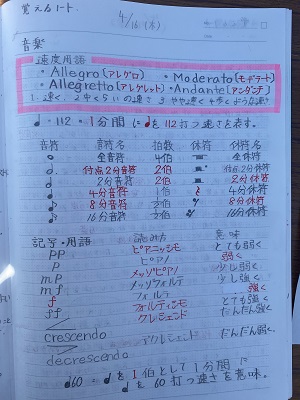 覚えるノート
4/16(木)
音楽
速度用語
・Allegro(アレグロ) ・Moderato(モデラート)
・Allegretto(アレグレット)・Andante(アンダンテ)
1. 速く 2 中くらいの速さ 3 やや速く 4 歩くような速さ
♩=112=1分間に♩を112打つ速さを表す。
音符 音符名 拍数 休符 休符名
全音符 4伯 全休符
付点2分音符 付点2分休符
2分音符 2伯 2分休符
4分音符 1伯 4分休符
8分音符 8分休符
16分音符 16分休符
記号・用語 読み方 意味
pp ピアニッシモ とても弱く
p ピアノ 弱く
mp メッゾピアノ 少し弱く
mf メッゾフォルテ 少し強く
f フォルテ 強く
ff フォルティシモ とても強く
crescendo クレシェンド だんだん強く
decrescendo デクレシェンド だんだん弱く。
♩60=♩を1伯として1分間に
♩を60打つ速さを意味。